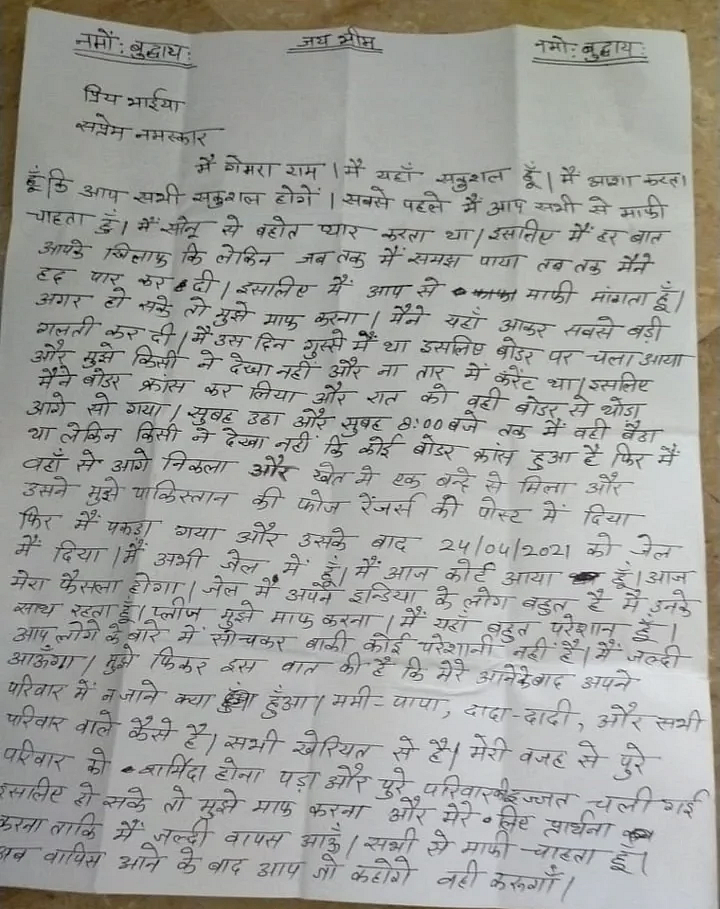 नमों: बुद्धाय: जय भीम नमो: बुद्धाय:
प्रिय भाईया
सप्रेम नमस्कार
मैं गेमरा राम। मैं यहाँ सकुशल हूँ। मैं आशा करता
हूँ कि आप सभी सकुशल होगें। सबसे पहले मैं आप सभी से माफी
चाहता हूँ। मैं सोनू से बहोत प्यार करता था। इसलिए मैं हर बात
आपके खिलाफ कि लेकिन जब तक मैं समझ पाया तब तक मैने
हद पार कर दी। इसालिए मैं आप से माफी मांगता हूँ।
अगर हो सके तो मुझे माफ करना। मैने यहाँ आकर सबसे बड़ी
गलती कर दी। मैं उस दिन गुस्से मैं था इसलिए बोडर पर चला आया
और मुझे किसी ने देखा नहीं और ना तार में करेंट था। इसलिए
मैने बोडर क्रांस कर लिया और रात को वही बोडर से थोडा
आगे सो गया। सुबह उठा और सुबह 8:00 बजे तक मैं वही बैठा
था लेकिन किसी ने देखा नहीं कि कोई बोडर क्रांस हुआ है फिर मैं
वहाँ से आगे निकला और खेत मे एक बन्दे से मिला और
उसने मुझे पाकिस्तान की फोज रेंजर्स की पोस्ट में दिया
फिर मैं पकड़ा गया और उसके बाद 24/04/2021 को जेल
में दिया। मैं अभी जेल में हूँ। मैं आज कोर्ट आया हूँ। आज
मेरा फैसला होगा। जेल में अपने इन्डिया के लोग बहुत है मैं उनके
साथ रहता हूं। प्लीज मुझे माफ करना। मैं यहां बहुत परेशान हूँ।
आप लोगे के बारे में सोचकर बाकी कोई परेशानी नहीं है। मैं जल्दी
आऊंगा। मुझे फिकर इस बात की है कि मेरे आनेकेबाद अपने
परिवार में न जाने क्या हुँआ। ममी-पापा, दादा-दादी, और सभी
परिवार वाले कैसे है। सभी खेरियत से है। मेरी वजह से पुरे
परिवार को शर्मिदा होना पड़ा और पुरे परिवार की इज्जत चली गई
इसालिए हो सके तो मुझे माफ करना और मेरे लिए प्रार्थना
करना ताकि मैं जल्दी वापस आऊँ। सभी से माफी चाहता हूँ।
अब वापिस आने के बाद आप जो कहोगे वही करूगाँ।